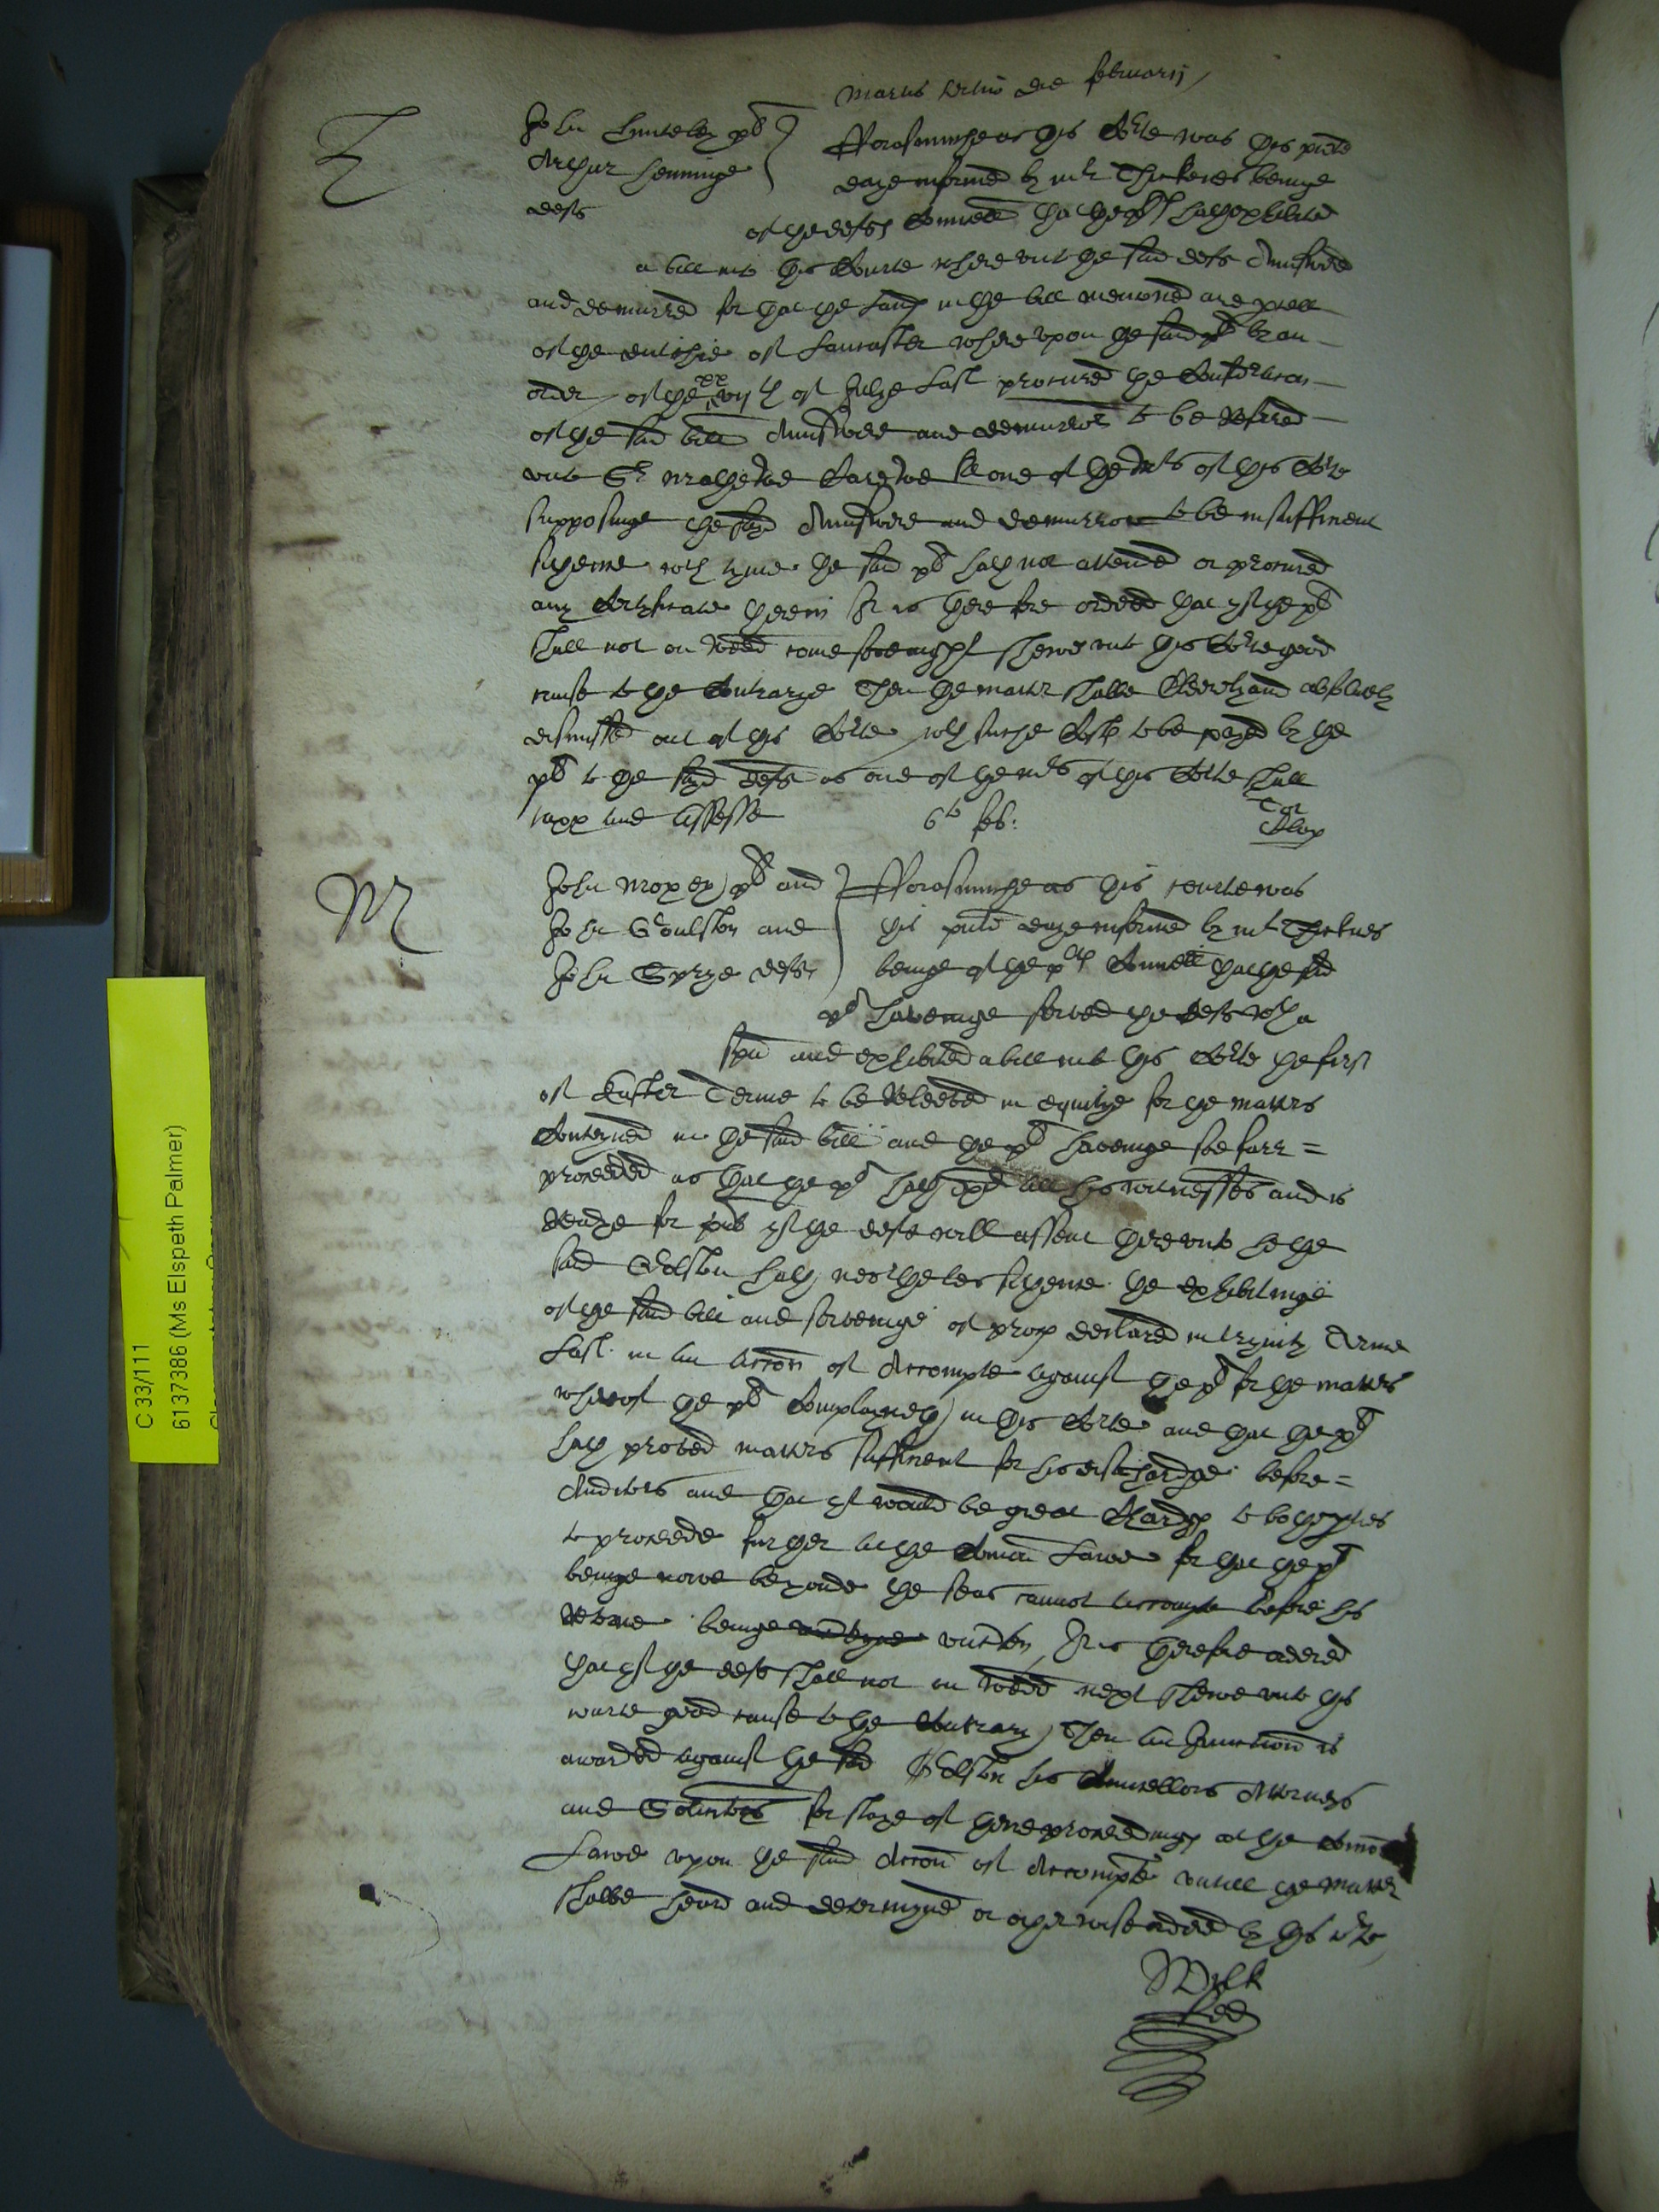 Martis tertio die februarij
L
John Lyncoln pl
Arthur Henninge
defts
fforasmuche as this Co[u]rte was this p[rese]nte
daye informed by mr Thickenes beinge
of the defts Councell that the pl hath exhibited
a bill into this Courte where unto the said defts Answered
and demurred for that the lands in the bill mencioned are p[ar]cell
of the dutchie of Lancaster whereupon the said pl by an
order of the xxvijth of Julye last procured the Consideracon
of the said bill Answere and demurrer to be referred
unto Sr Mathewe Carewe kt one of the mrs of this Co[u]rte
supposinge the said Answere and demurrer to be insufficient
sithence wch tyme the said pl hath not attended or procured
any Certificate therein It is therefore ordered that yf the pl
shall not on wedd come sevenight shewe unto this Co[u]rte good
cause to the Contrarye Then the matter shalbe Cleerely and absolutely
dismissed out of this Co[u]rte wth suche Costs to be payed by the
pl to the said defts as one of the mrs of this Co[u]rte shall
taxe and Assesse
6to feb:
M
John Moxey pl and
John Goulston and
John Sprye defts
fforasmuche as this courte was
this p[rese]nte daye informed by mr Thicknes
beinge of the pls Councell that the said
pl haveinge served the defts wth a
spa and exhibited a bill into this Co[u]rte the first
of Easter Terme to be Releeved in equitye for the matters
Conteyned in the said bill and the pl haveinge soe farr =
proceeded as that the pl hath exed all his witnesses and is
readye for pub yf the defts will assent thereunto he the
said Golston hath nevertheles sithence the exhibitinge
of the said bill and serveinge of proces declared in trynity Terme
last in an accon of Accompte against the pl for the matters
whereof the pl Complayneth in this Co[u]rte and that the pl
hath proved matters sufficient for his dischardge before =
Auditors and that yt would be great Chardge to bothe p[ar]ties
to proceede further at the Comon Lawe for that the pl
beinge nowe beyonde the seas cannot accompte before his
retorne beinge uncerten, It is therefore ordered
that yf the defts shall not on wedd next shewe unto this
courte good cause to the Contrary Then an Iniunction is
awarded against the said Golston his Councellors Attorneys
and Solicitors for staye of there proceedings at the Comon
Lawe upon the said Accon of Accompte untill the matter
shalbe heard and determyned or otherwise ordered by this Co[u]rte
C 33/111
6137386 (Ms Elspeth Palmer)